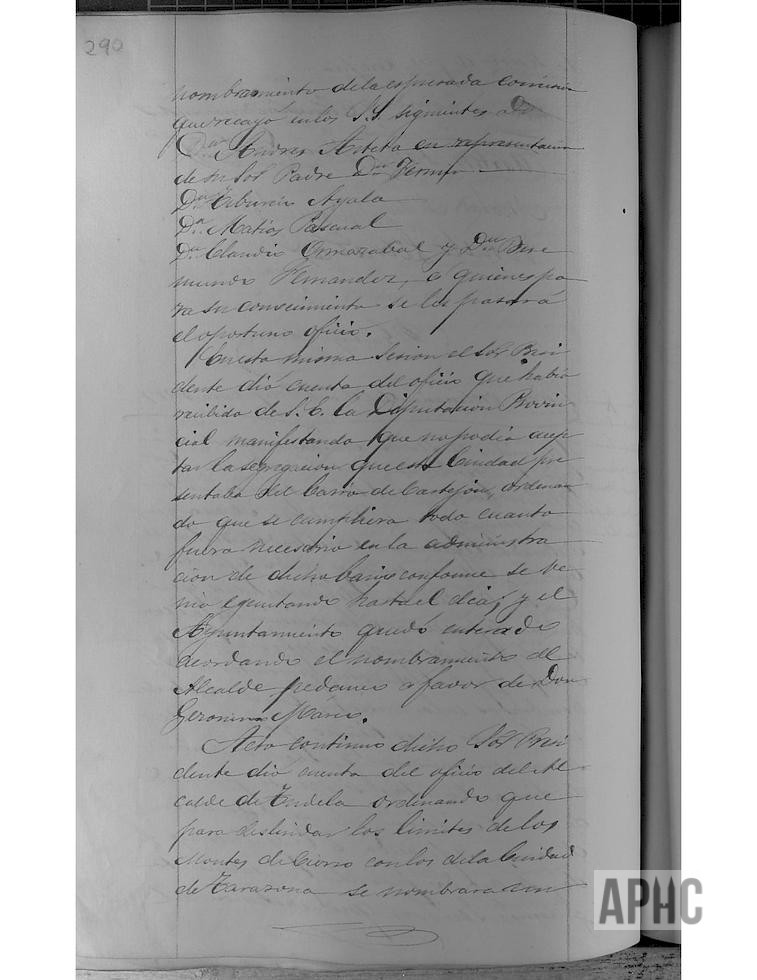 290
nombramiento de la espresada comision
que recayó en los S.S. siguientes
Dn Andres Arteta en representacion
de su Sor Padre Dn Fermin
Dn Tiburcio Ayala
Dn Matias Pascual
Dn Claudio Ormazabal y Dn Bere
mundo Fernandez, á quienes pa
ra su conocimiento se les pasará
el oportuno oficio.
En esta misma sesion el Sor Presi
dente dió cuenta del oficio que había
recibido de S. E. la Diputacion Provin
cial manifestando que no podia acep
tar la segregacion que esta Ciudad pre
sentaba del barrio de Castejon, ordenan
do que se cumpliera todo cuanto
fuera necesario en la administra
cion de dicho barrio conforme se ve
nia egecutando hasta el dia; y el
Ayuntamiento quedó enterado
acordando el nombramiento de
Alcalde pedaneo a favor de Don
Geronimo Marco.
Acto continuo dicho Sor Presi
dente dió cuenta del oficio del Al
calde de Tudela ordenando que
para deslindar los limites de los
Montes de Cierzo con los de la Ciudad
de Tarazona se nombrara un
APHC